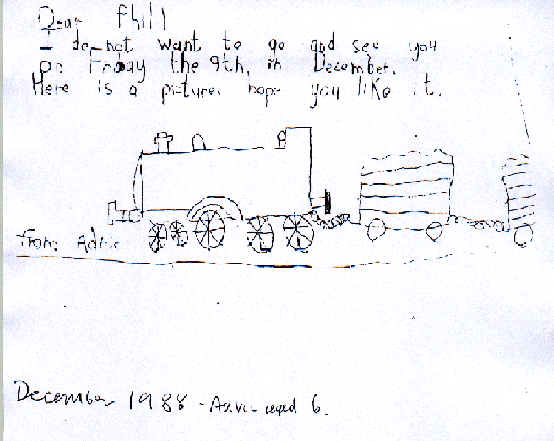 Dear Phill
I do not want to go and see you
on Friday the 9th, in December.
Here is a picture, hope you like it.
from
December 1988 - aged 6.